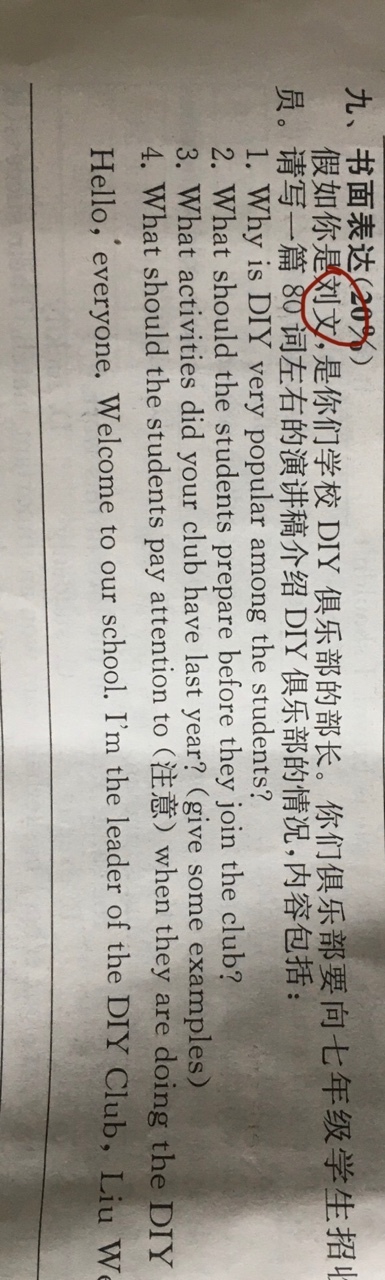 九、书面表达(20%)
假如你是刘文,是你们学校 DIY 俱乐部的部长。你们俱乐部要向七年级学生招
员。请写一篇 80 词左右的演讲稿介绍 DIY 俱乐部的情况,内容包括:
1. Why is DIY very popular among the students?
2. What should the students prepare before they join the club?
3. What activities did your club have last year? (give some examples)
4. What should the students pay attention to (注意) when they are doing the DIY
Hello, everyone. Welcome to our school. I'm the leader of the DIY Club, Liu